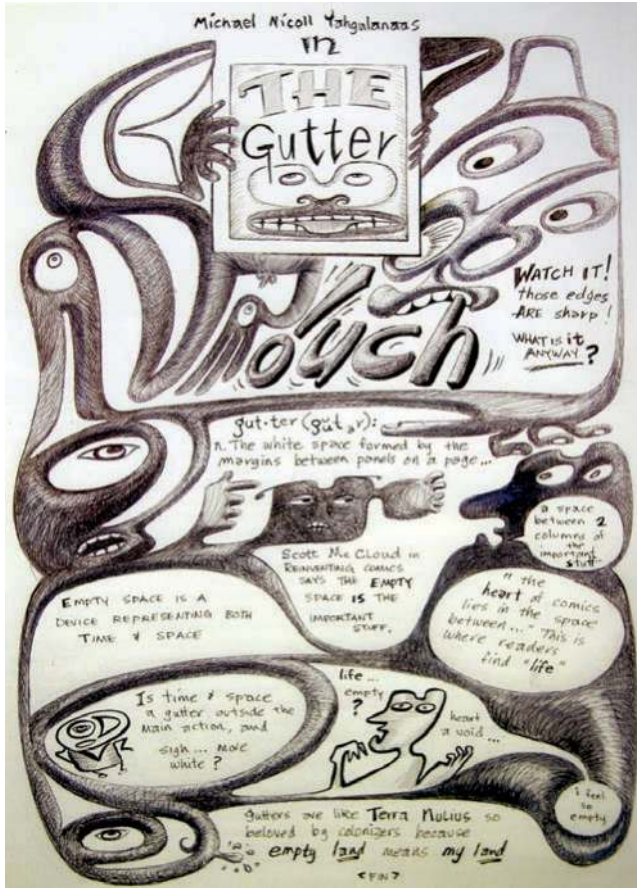 Michael Nicoll Yahgulanaas
in
THE
Gutter
Ouch
WATCH IT!
those edges
ARE sharp!
WHAT IS it
ANYWAY?
gut·ter (gŭt ər):
n. The white space formed by the
margins between panels on a page...
a space
between 2
columns of
the
important
stuff
Scott McCloud in
REINVENTING COMICS
SAYS THE EMPTY
SPACE IS THE
IMPORTANT
STUFF.
EMPTY SPACE IS A
DEVICE REPRESENTING BOTH
TIME & SPACE
"the
heart of comics
lies in the space
between..." This is
where readers
find "life"
Is time & space
a gutter outside the
Main action, and
sigh... more
white?
life...
empty
?
heart
a void...
i feel
so
empty
gutters are like Terra Nulius so
beloved by colonizers because
empty land means my land
<FIN>